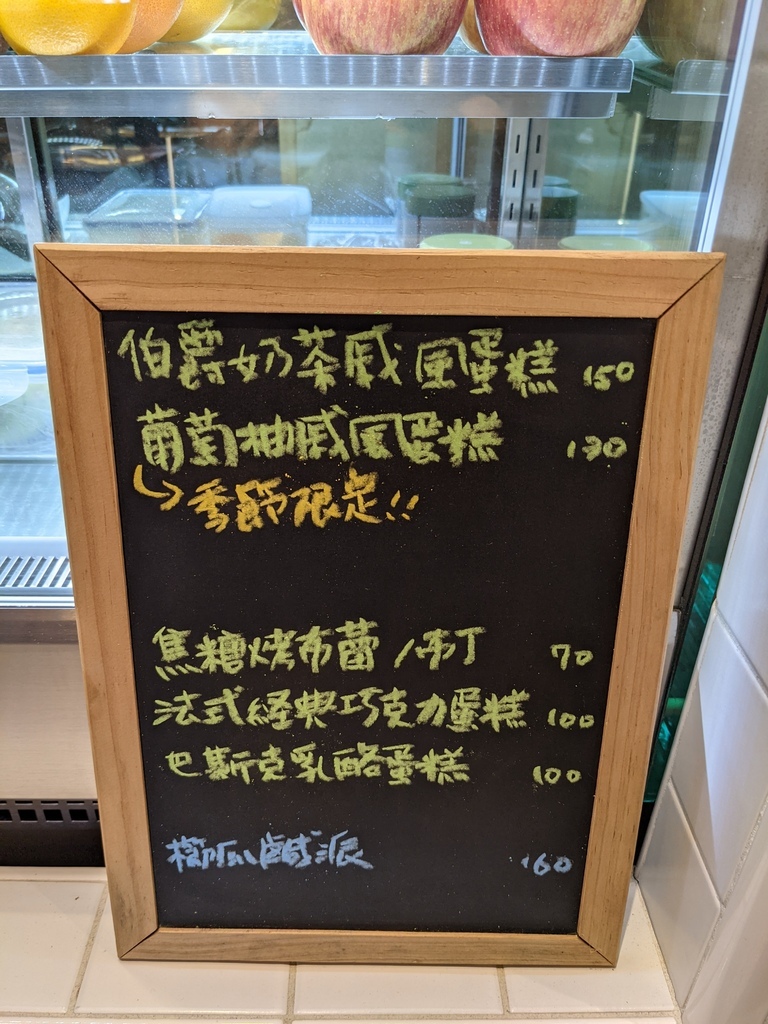 伯爵奶茶威風蛋糕 150
葡萄柚威風蛋糕 130
季節限定!!
焦糖烤布蕾/布丁 70
法式經典巧克力蛋糕 100
巴斯克乳酪蛋糕 100
櫛瓜鹹派 160